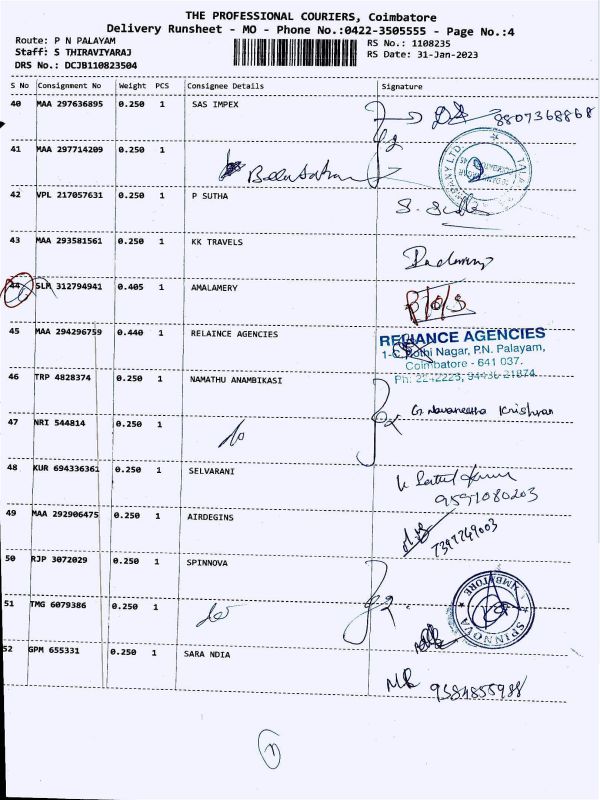 THE PROFESSIONAL COURIERS, Coimbatore
Delivery Runsheet - MO - Phone No.:0422-3505555 - Page No.:4
Route: P N PALAYAM
RS No.: 1108235
Staff: S THIRAVIYARAJ
RS Date: 31-Jan-2023
DRS No.: DCJB110823504
S No Consignment No Weight PCS Consignee Details Signature
40 MAA 297636895 0.250 1 SAS IMPEX 8807368868
41 MAA 297714209 0.250 1
42 VPL 217057631 0.250 1 P SUTHA
43 MAA 293581561 0.250 1 KK TRAVELS
44 SLM 312794941 0.405 1 AMALAMERY
45 MAA 294296759 0.440 1 RELAINCE AGENCIES
RELIANCE AGENCIES
1-C, Pothi Nagar, P.N. Palayam,
Coimbatore - 641 037.
Ph: 2242223, 94436 21874
46 TRP 4828374 0.250 1 NAMATHU ANAMBIKASI G. Navaneetha Krishnan
47 NRI 544814 0.250 1
48 KUR 694336361 0.250 1 SELVARANI
9591080203
49 MAA 292906475 0.250 1 AIRDEGINS
7397249003
50 RJP 3072029 0.250 1 SPINNOVA
SPINNOVA
51 TMG 6079386 0.250 1
52 GPM 655331 0.250 1 SARA NDIA
9384855988